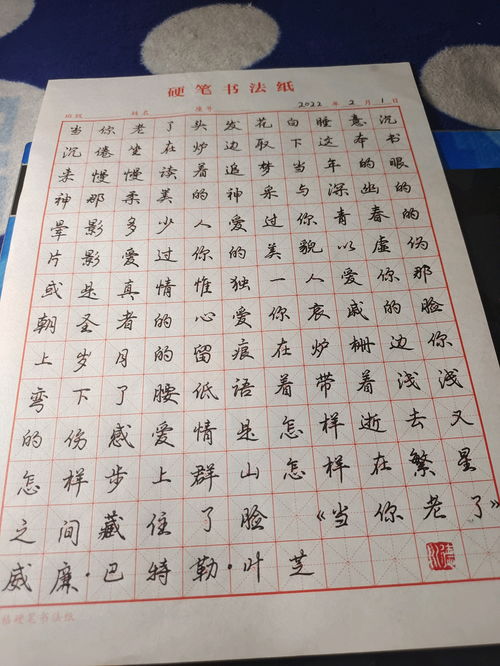 硬笔书法纸
班级 姓名 座号 2022年2月1日
当你老了头发花白睡意沉
沉倦坐在炉边取下这本书
来慢慢读着追梦当年的眼
神那柔美的神采与深幽的
晕影多少人爱过你青春的
片影爱过你的美貌以虚伪
或是真情惟独一人爱你那
朝圣者的心爱你哀戚的脸
上岁月的留痕在炉栅边你
弯下了腰低语着带着浅浅
的伤感爱情是怎样逝去又
怎样步上群山怎样在繁星
之间藏住了脸 《当你老了》
威廉·巴特勒·叶芝
格硬笔书法纸